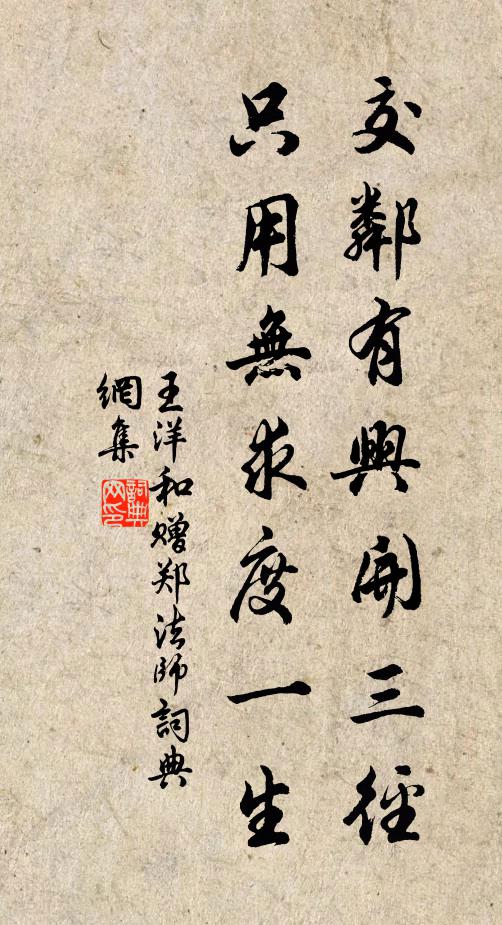 交鄰有興開三徑
只用無求度一生
王洋和赠郑法師詞典
網集
詞典
网印